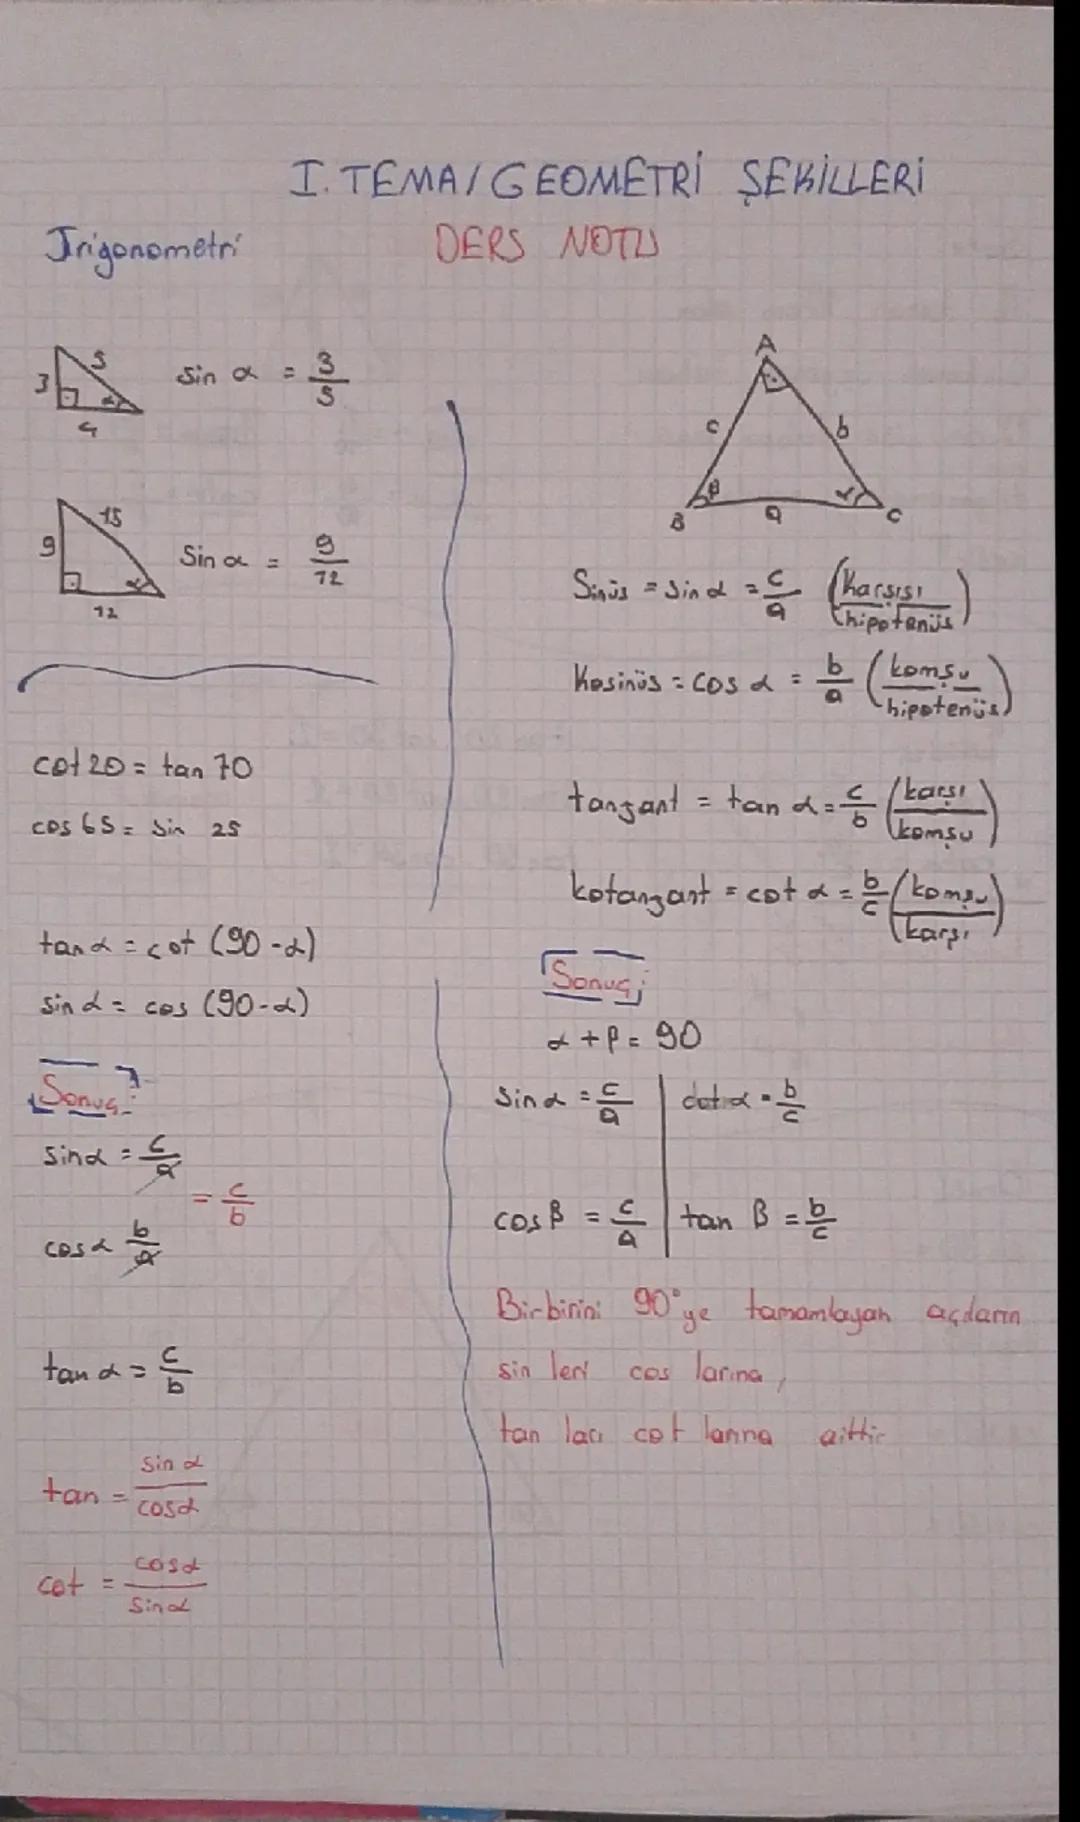 I. TEMA / GEOMETRİ ŞEKİLLERİ
DERS NOTU
Trigonometri
3
5
4
α
sin α = 3/5
9
15
12
α
Sin α = 9/12
cot 20 = tan 70
cos 65 = sin 25
tan α = cot (90 - α)
sin α = cos (90 - α)
Sonuç:
sin α = c/a
cos α b/a
= c/b
tan α = c/b
tan = sin α/cos α
cot = cos α/sin α
A
c
b
B
β
a
α
C
Sinüs = Sin α = c/a (Karşısı/hipotenüs)
Kosinüs = cos α = b/a (komşu/hipotenüs)
tanjant = tan α = c/b (karşı/komşu)
kotanjant = cot α = b/c (komşu/karşı)
Sonuç;
α + β = 90
Sin α = c/a | cot α = b/c
cos β = c/a | tan β = b/c
Birbirini 90°ye tamamlayan açıların
sin leri cos larına,
tan ları cot larına aittir